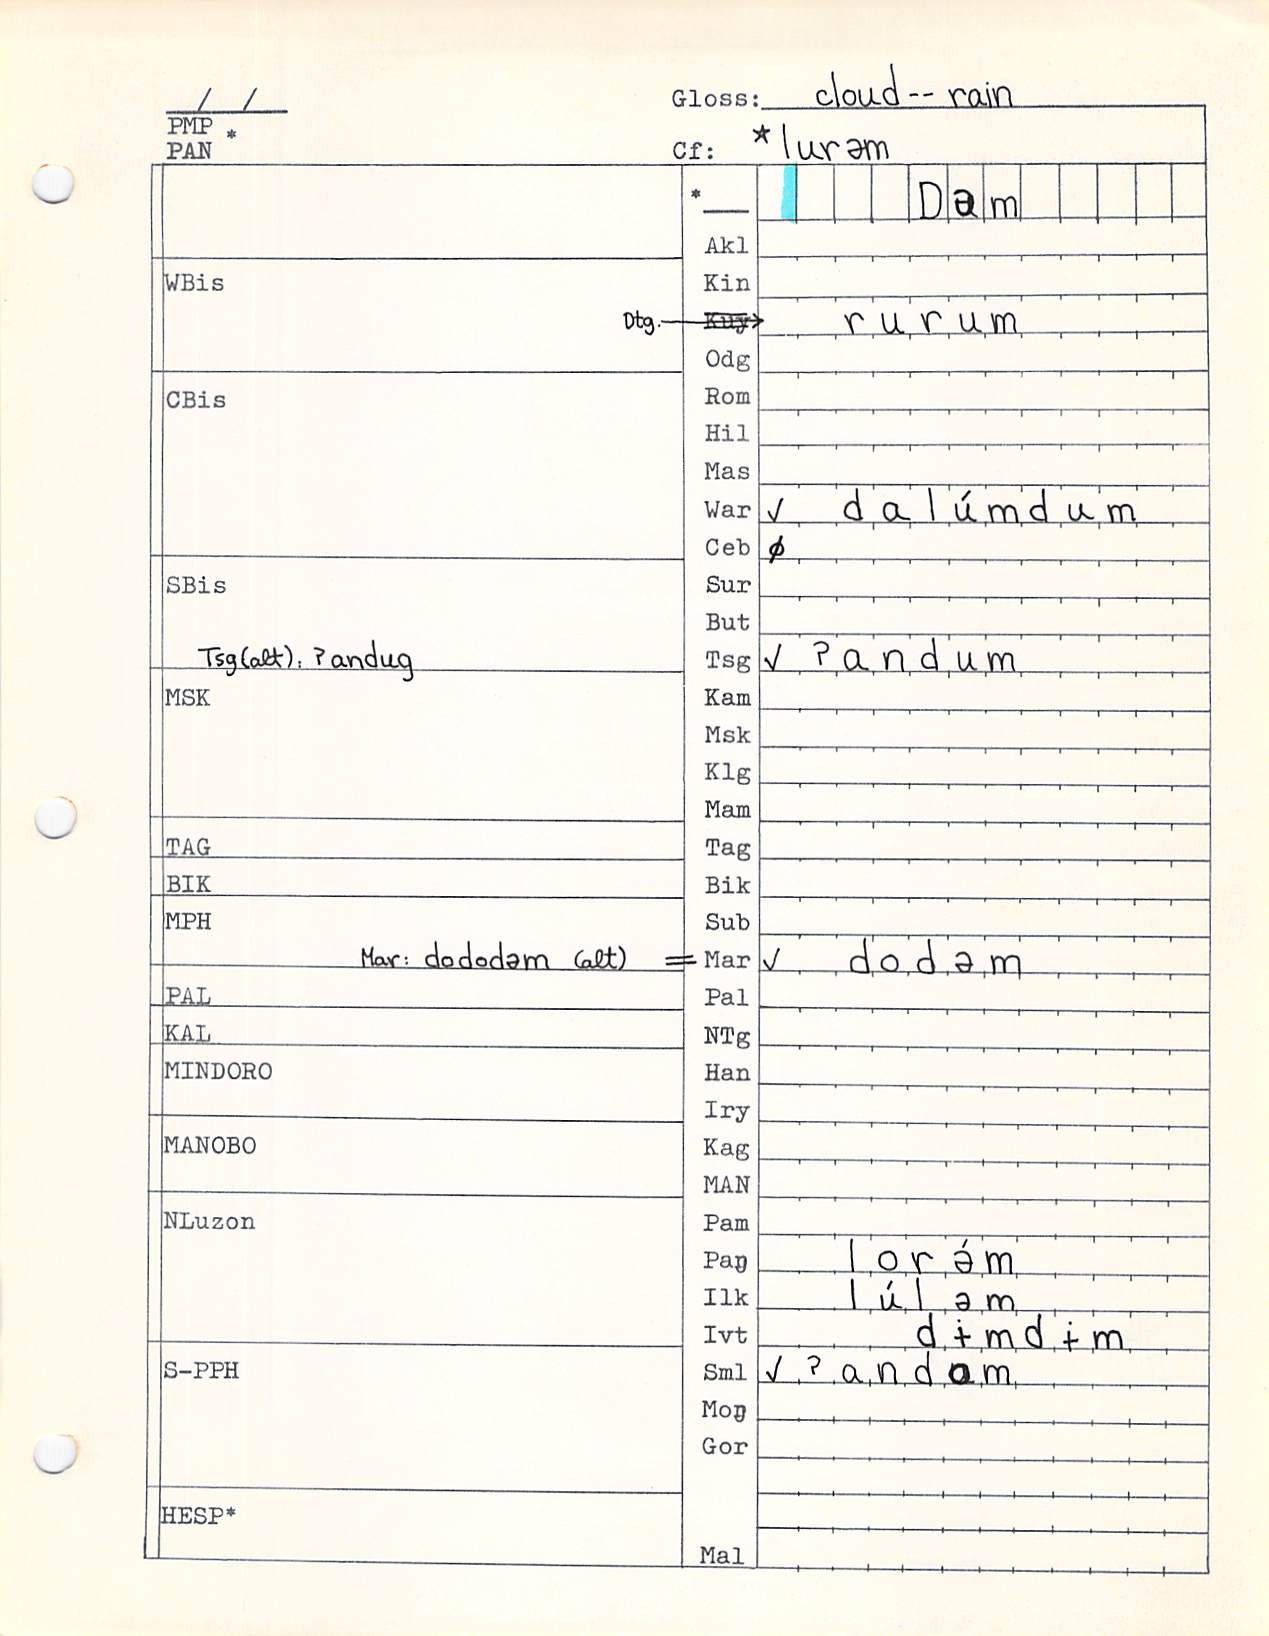 / / Gloss: cloud -- rain
PMP *
PAN Cf: *lurəm
*__ Dəm
Akl
WBis Kin
Dtg. → Kuy rurum
Odg
CBis Rom
Hil
Mas
War ✓ dalúmdum
Ceb ø
SBis Sur
But
Tsg(alt): ʔandug Tsg ✓ ʔandum
MSK Kam
Msk
Klg
Mam
TAG Tag
BIK Bik
MPH Sub
Mar: dododəm (alt) = Mar ✓ dodəm
PAL Pal
KAL NTg
MINDORO Han
Iry
MANOBO Kag
MAN
NLuzon Pam
Paŋ lorə́m
Ilk lúləm
Ivt dɨmdɨm
S-PPH Sml ✓ ʔandom
Moŋ
Gor
HESP*
Mal